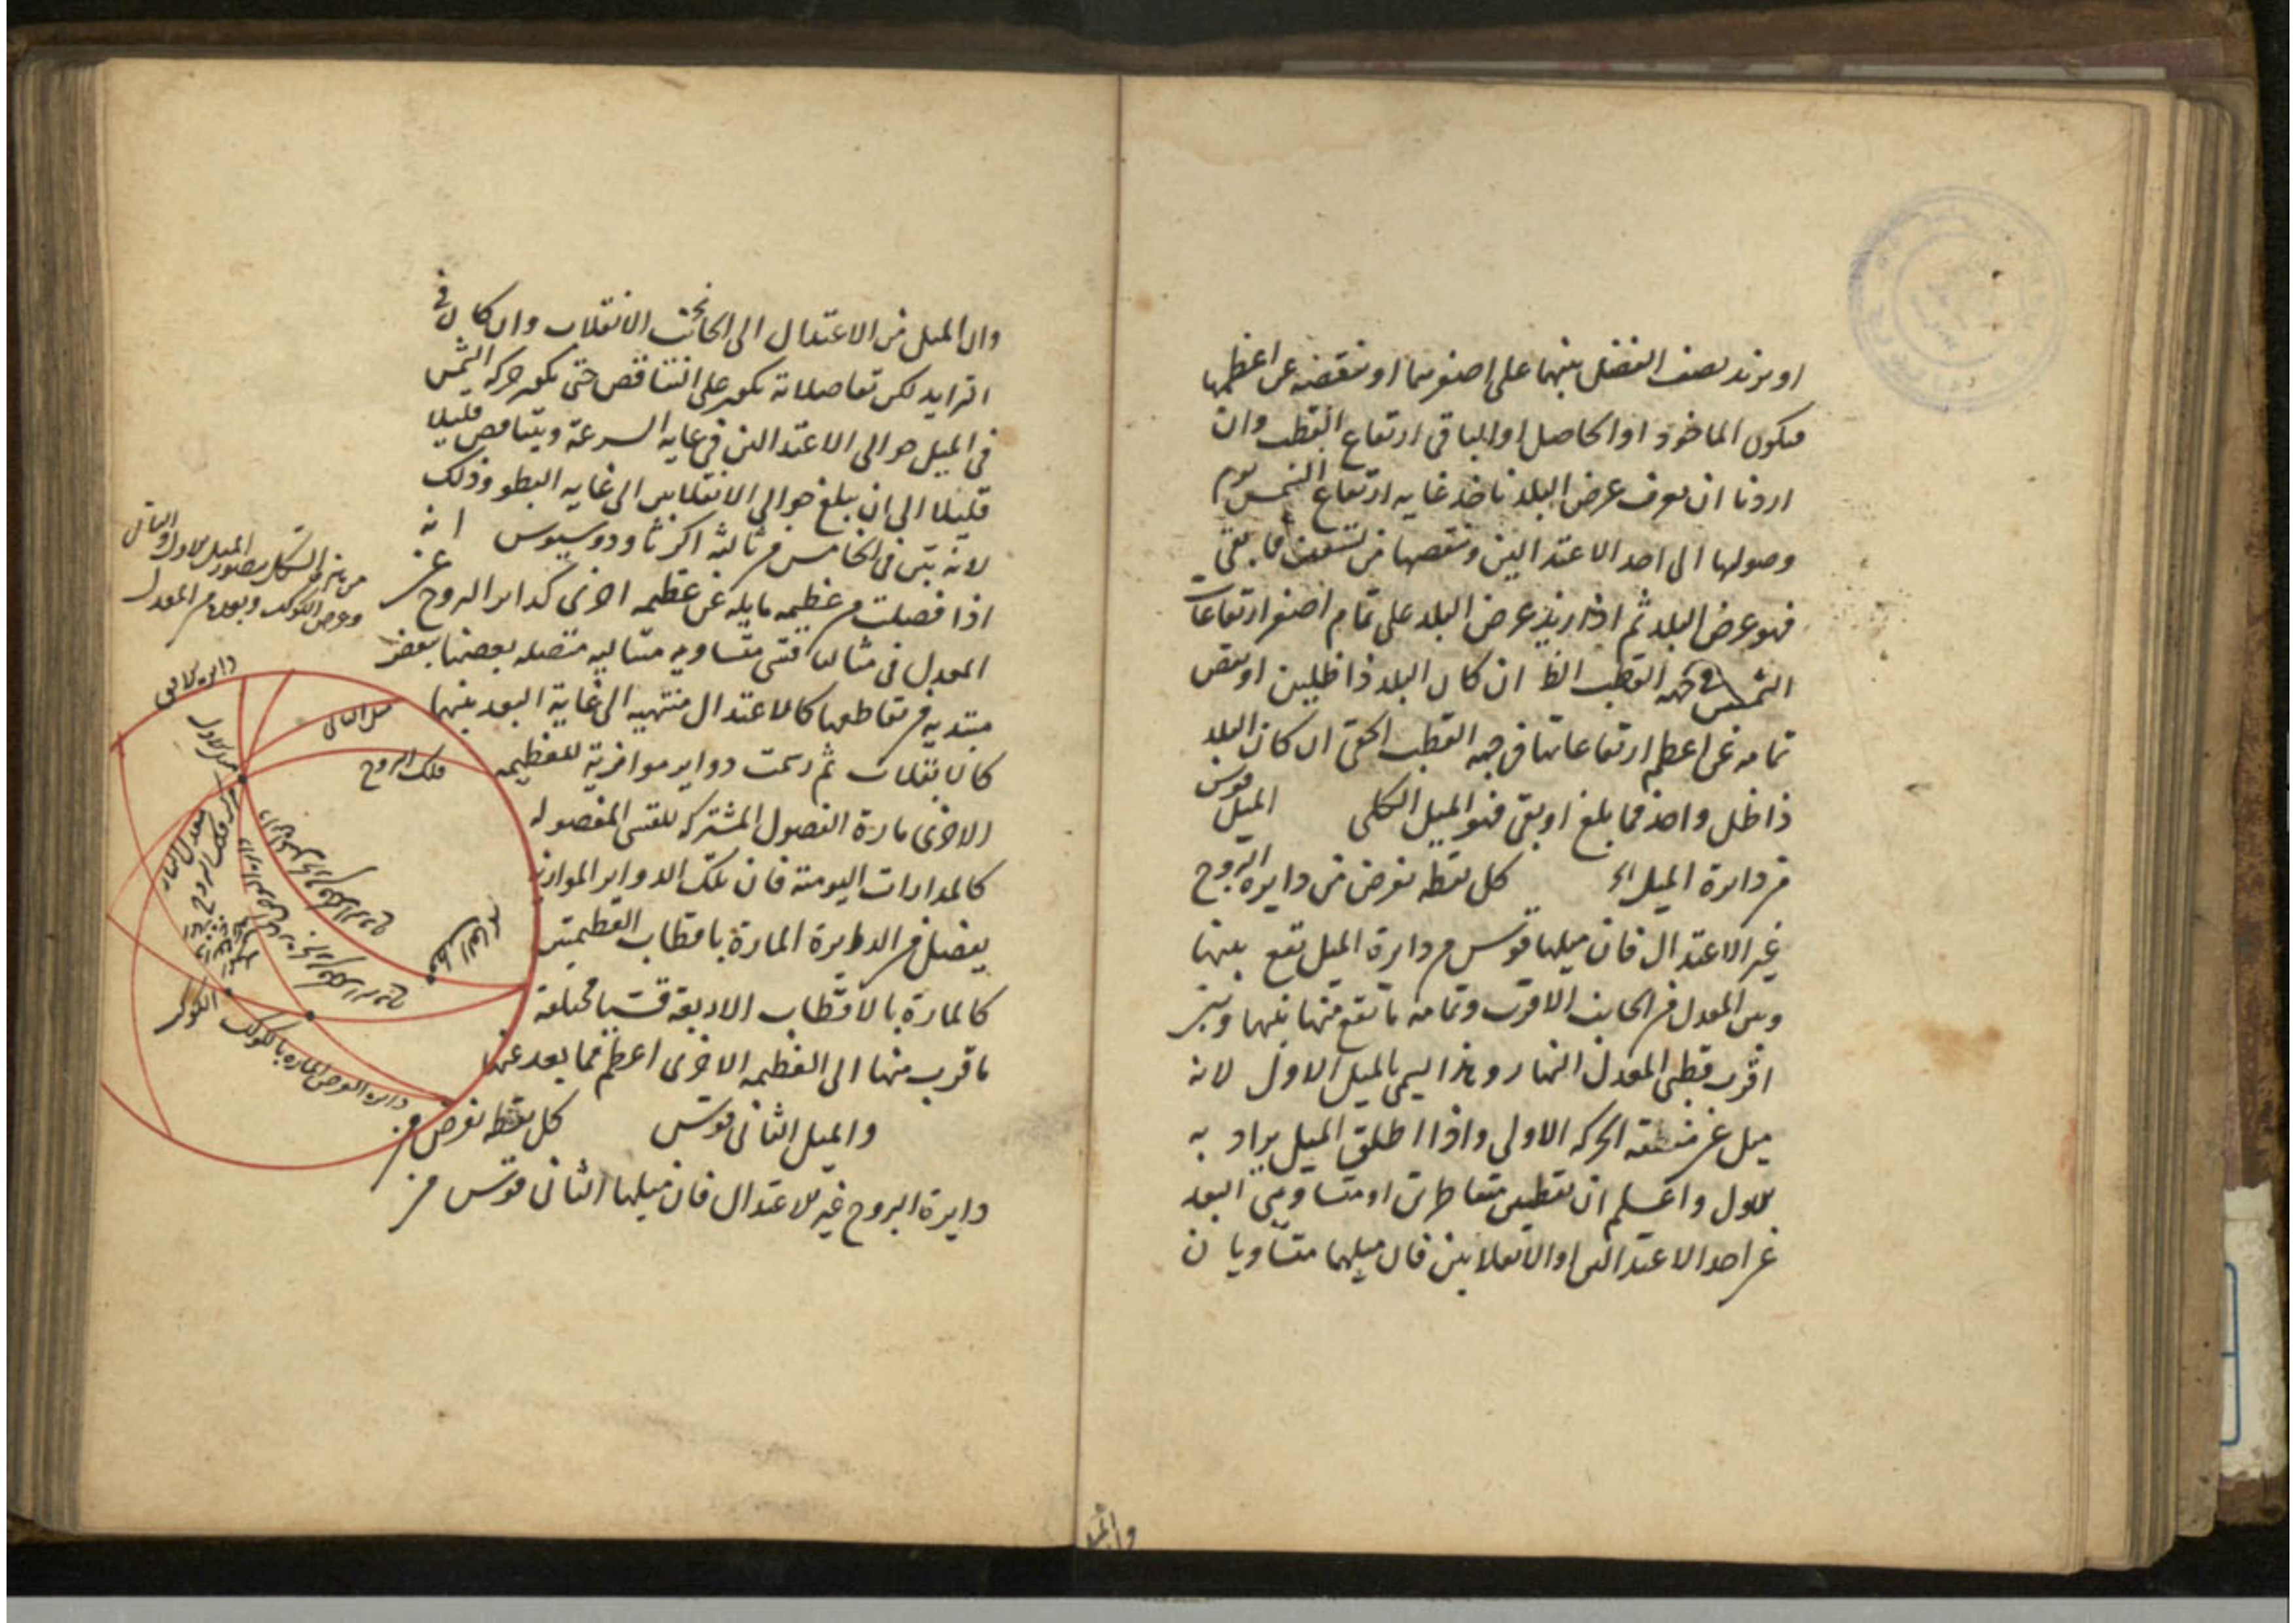 او نزيد نصف الفضل بينهما على اصغرهما او ننقصه عن اعظمها
فيكون الماخوذ او الحاصل او الباقى ارتفاع القطب وان
اردنا ان نعرف عرض البلد ناخذ غاية ارتفاع الشمس يوم
وصولها الى احد الاعتدالين وننقصها من تسعين فما بقى
فهو عرض البلد ثم اذا زيد عرض البلد على تمام اصغر ارتفاعات
الشمس فى جهة القطب الظ ان كان البلد ذا ظلين او نقص
تمامه عن اعظم ارتفاعاتها فى جهة القطب الخفى ان كان البلد
ذا ظل واحد فما بلغ او بقى فهو الميل الكلى الميل قوس
من دايرة الميل كل نقطه تفرض من دايرة البروج
غير الاعتدال فان ميلها قوس من دايرة الميل تقع بينها
وبين المعدل من الجانب الاقرب وتمامه ما تقع منها بينها وبين
اقرب قطبى المعدل النهار وهذا يسمى بالميل الاول لانه
ميل عن منطقة الحركه الاولى واذا اطلق الميل يراد به
الاول واعلم ان نقطتين متقاطرتين او متساويتى البعد
عن احد الاعتدالين او الانقلابين فان ميلهما متساويان
وان الميل
وان الميل من الاعتدال الى جانب الانقلاب وان كان فى
التزايد لكن تفاضلاته تكون على التناقص حتى تكون حركة الشمس
فى الميل حوالى الاعتدالين فى غاية السرعة ويتناقص قليلا
قليلا الى ان يبلغ حوالى الانقلابين الى غاية البطؤ وذلك
لانه تبين فى الخامس من ثالثة اكر ثاودوسيوس انه
اذا فصلت من عظيمه مايله عن عظيمه اخرى كداير البروج عن
المعدل فى مثالنا قسى متساويه متتاليه متصله بعضها ببعض
مبتديه من تقاطعها كالاعتدال منتهيه الى غاية البعد بينهما
كالانقلاب ثم رسمت دواير موازية للعظيمه
الاخرى مارة الفصول المشتركه للقسى المفصوله
كالمدارات اليوميه فان تلك الدواير الموازيه
يفصل من الدايرة المارة باقطاب العظيمتين
كالمارة بالاقطاب الاربعة قسيا مختلفة
ما قرب منها الى العظيمه الاخرى اعظم مما بعد عنها
والميل الثانى قوس كل نقطه تفرض من
دايرة البروج غير الاعتدال فان ميلها الثانى قوس من
من هذا الشكل يتصور الميل الاول والثانى
وعرض الكوكب وبعده من المعدل
دايرة
ميل الثانى
فلك البروج
معدل النهار
الكوكب
دايرة العرض الماره بالكوكب